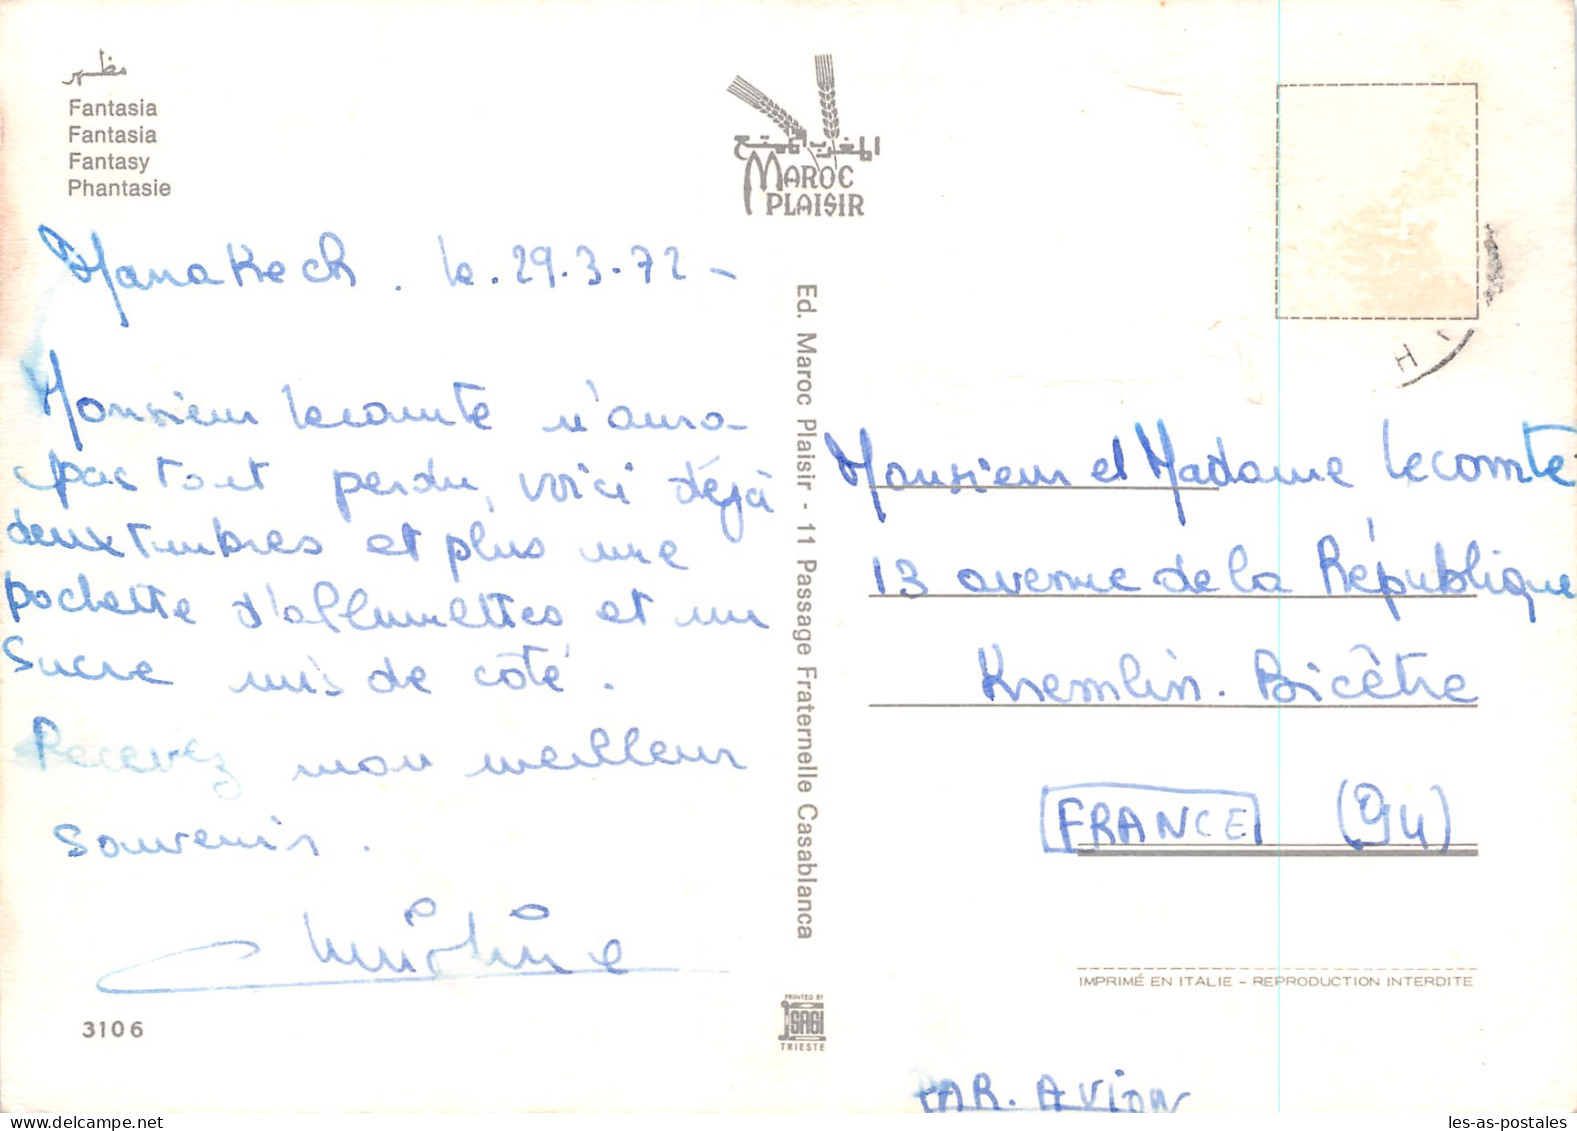 مظهر
Fantasia
Fantasia
Fantasy
Phantasie
المغرب الممتع
MAROC
PLAISIR
Marrakech. le. 29.3.72 -
Monsieur Lecomte n'aura
pas tout perdu, voici déjà
deux timbres et plus une
pochette d'allumettes et un
Sucre mis de côté.
Recevez mon meilleur
souvenir.
Christine
3106
Ed. Maroc Plaisir - 11 Passage Fraternelle Casablanca
PRINTED BY
SAGI
TRIESTE
H
Monsieur et Madame Lecomte
13 avenue de la République
Kremlin. Bicêtre
FRANCE (94)
IMPRIMÉ EN ITALIE - REPRODUCTION INTERDITE
PAR. AVION
les-as-postales